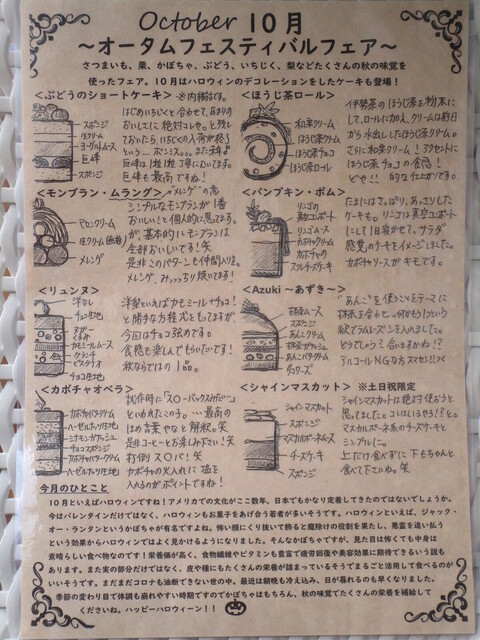 October 10月
～オータムフェスティバルフェア～
さつまいも、栗、かぼちゃ、ぶどう、いちじく、梨などたくさんの秋の味覚を
使ったフェア。10月はハロウィンのデコレーションをしたケーキも登場！
＜ぶどうのショートケーキ＞ ※内緒話です。
スポンジ
生クリーム
ヨーグルトムース
巨峰
スポンジ
はじめいちじくと合わせて、あまりの
おいしさに絶対コレや。と残し
ておいたら、いちじくの入荷が終了
という…ポンミス。また来年♪
巨峰は1粒1粒丁寧にむいてます。
巨峰も最高ですね！
＜ほうじ茶ロール＞
和栗クリーム
ほうじ茶クリーム
ほうじ茶チョコ
ほうじ茶ロール
伊勢茶のほうじ茶を粉末に
して、ロールに加え、クリームは前日
から水出ししたほうじ茶クリーム。
さらに和栗クリーム！アクセントに
ほうじ茶チョコの食感！
どや！！的な仕上がりです。
＜モンブラン・ムラング＞ "メレンゲ"の意
マロンクリーム
生クリーム
メレンゲ
シンプルなモンブランが1番
おいしい！と個人的に思ってます
が、基本的にモンブランは
全部おいしいです！笑
是非このパターンも仲間入りを。
メレンゲ、みっっっちり焼いてます！
＜パンプキン・ポム＞
リンゴの
真空コンポート
リンゴムース
カボチャクリーム
カボチャの
スフレチーズケーキ
たまにはさっぱり、あっさりした
ケーキも。リンゴは真空コンポート
にして1日寝かせて、サラダ
感覚のケーキをイメージしました。
カボチャソースがキモです。
＜リュンヌ＞
洋なし
チョコ生地
カモミールムース
クランチ
ピスタチオ
チョコ生地
洋梨といえばカモミール、チョコ！
と勝手な方程式をもってますが、
今回はチョコ強めです。
食感も楽しんでもらいたいです！
秋ならではの1品。
＜Azuki ～あずき～＞
抹茶ムース
スポンジ
あんこクリーム
抹茶ガナッシュ
あんこバタークリーム
ダコワーズ
"あんこ"を使うことをテーマに
抹茶を合せ、何かもう1つという
欲でラムレーズンを入れました。
どうでしょう？合いますかね！？
アルコールNGな方スミマセン!!
＜カボチャオペラ＞
カボチャバタクリーム
ヘーゼルナッツ生地
シナモンガナッシュ
チョコスポンジ
カボチャバタークリーム
ヘーゼルナッツ生地
試作時に「スローバックスみたいだー」
といわれたこの子。…最高の
ほめ言葉やなと解釈。笑
是非コーヒーとお楽しみ下さい！笑
打倒スロバ！笑
カボチャの火入れに塩を
入れるのがポイントですね！
＜シャインマスカット＞ ※土日祝限定
シャインマスカット
スポンジ
マスカルポーネムース
チーズケーキ
スポンジ
シャインマスカットは絶対使おうと
思ってました。コレはいるやろ！？と。
マスカルポーネ系のチーズケーキと
シンプルに。
上だけ食べずに、下もちゃんと
食べて下さいね。笑
今月のひとこと
10月といえばハロウィンですね！アメリカでの文化がここ数年、日本でもかなり定着してきたのではないでしょうか。
今はバレンタインだけではなく、ハロウィンもお菓子をあげ合う若者が多いそうです。ハロウィンといえば、ジャック・
オー・ランタンというかぼちゃが有名ですよね。怖い顔にくり抜いて飾ると魔除けの役割を果たし、悪霊を追い払う
という効果からハロウィンではよく見かけるようになりました。そんなかぼちゃですが、見た目は怖くても中身は
素晴らしい食べ物なのです！栄養価が高く、食物繊維やビタミンも豊富で疲労回復や美容効果に期待できるいう説も
あります。また実の部分だけではなく、皮や種にもたくさんの栄養が詰まっているそうでまるごと活用して食べるのが
いいそうです。まだまだコロナも油断できない世の中。最近は朝晩も冷え込み、日が暮れるのも早くなりました。
季節の変わり目で体調も崩れやすい時期ですのでかぼちゃはもちろん、秋の味覚でたくさんの栄養を補給して
くださいね。ハッピーハロウィーン！！